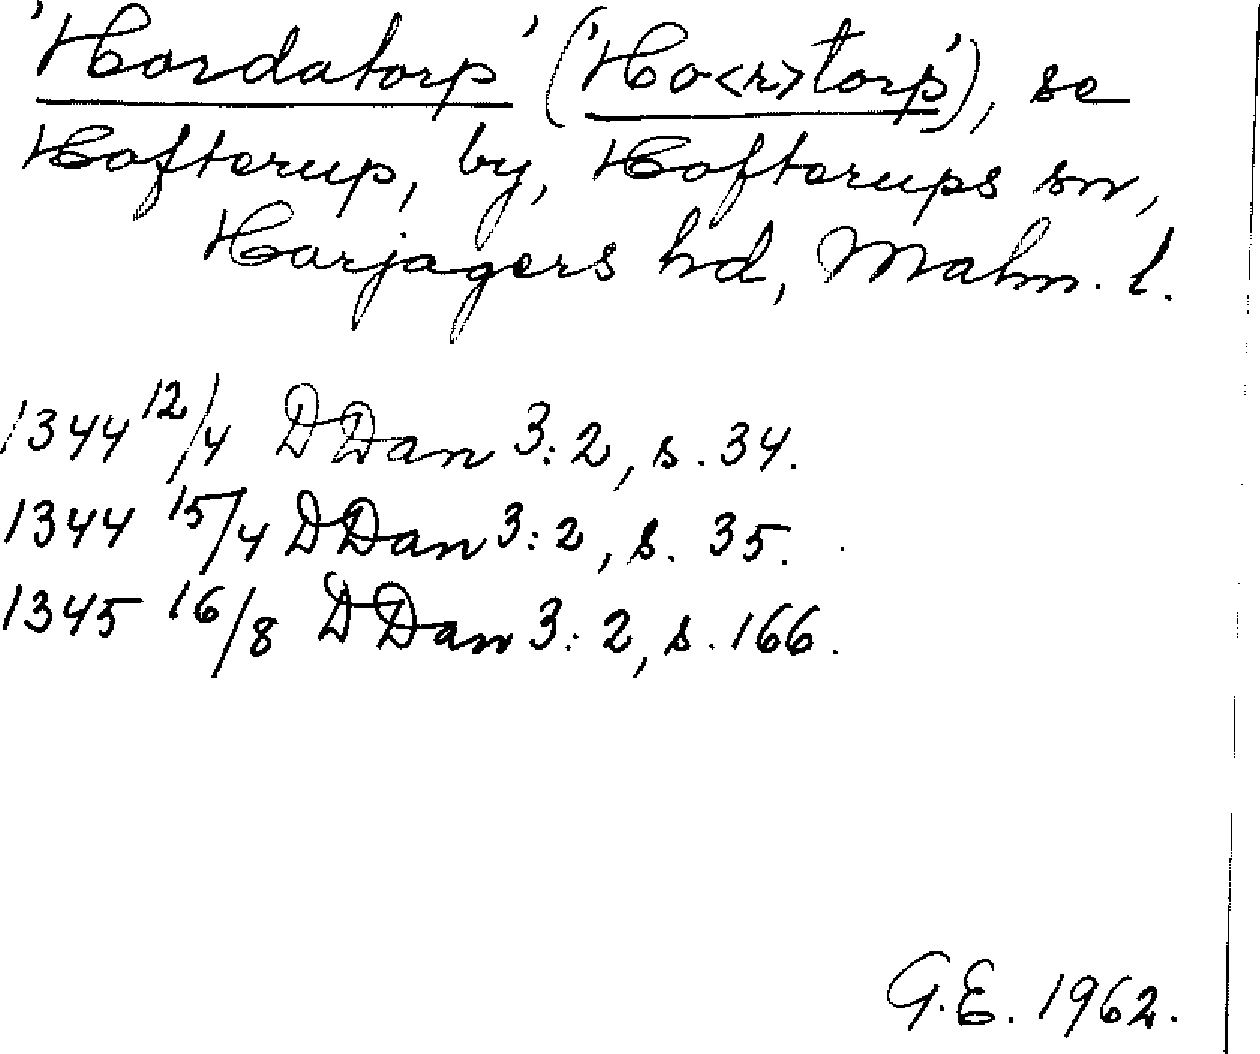 'Hordatorp' ('Ho<r>torp'), se
Hofterup, by, Hofterups sn,
Harjagers hd, Malm. l.
1344 12/4 DDan 3:2, s. 34.
1344 15/4 DDan 3:2, s. 35.
1345 16/8 DDan 3:2, s. 166.
G.E. 1962.